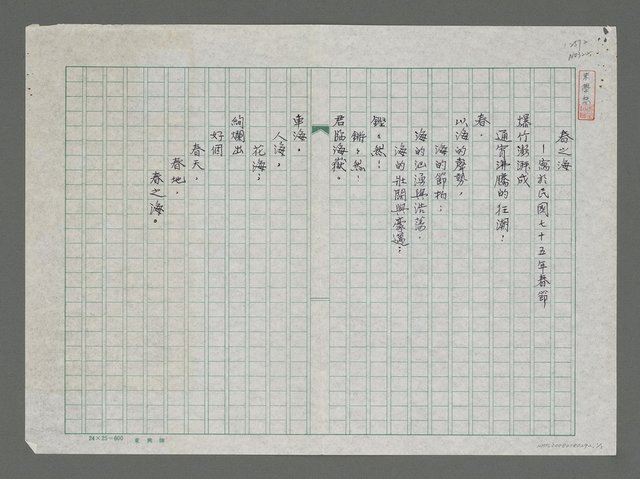 春之海
—寫於民國七十五年春節
爆竹澎湃成
通宵沸騰的狂瀾！
春，
以海的聲勢，
海的節拍；
海的汹湧與浩蕩，
海的壯闊與豪邁；
鏗，然！
鏘，然！
君臨海嶽。
車海。
人海，
花海；
絢爛出
好個
春天，
春地，
春之海。
24×25=600